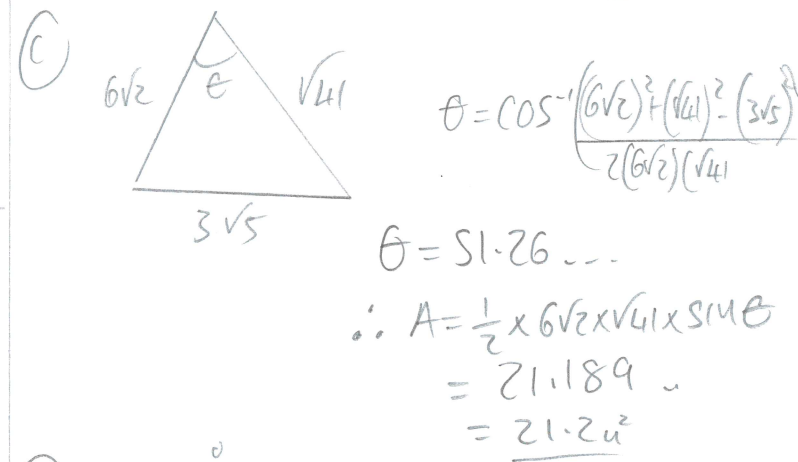 C
6√2 θ √41
3√5
θ = COS⁻¹((6√2)²+(√41)²-(3√5)²
2(6√2)(√41
θ = 51.26 ...
∴ A = 1/2 × 6√2 × √41 × SINθ
= 21.189 ..
= 21.2u²